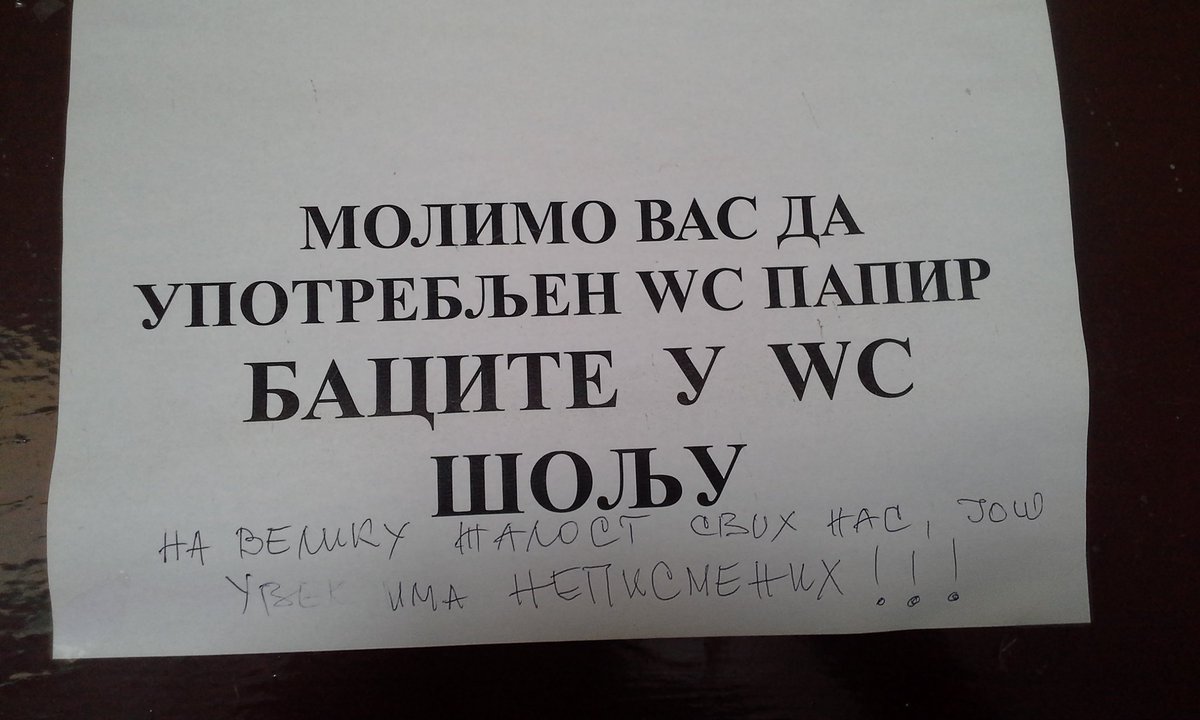 МОЛИМО ВАС ДА
УПОТРЕБЉЕН WC ПАПИР
БАЦИТЕ У WC
ШОЉУ
НА ВЕЛИКУ ЖАЛОСТ СВИХ НАС, ЈОШ
УВЕК ИМА НЕПИСМЕНИХ!!!